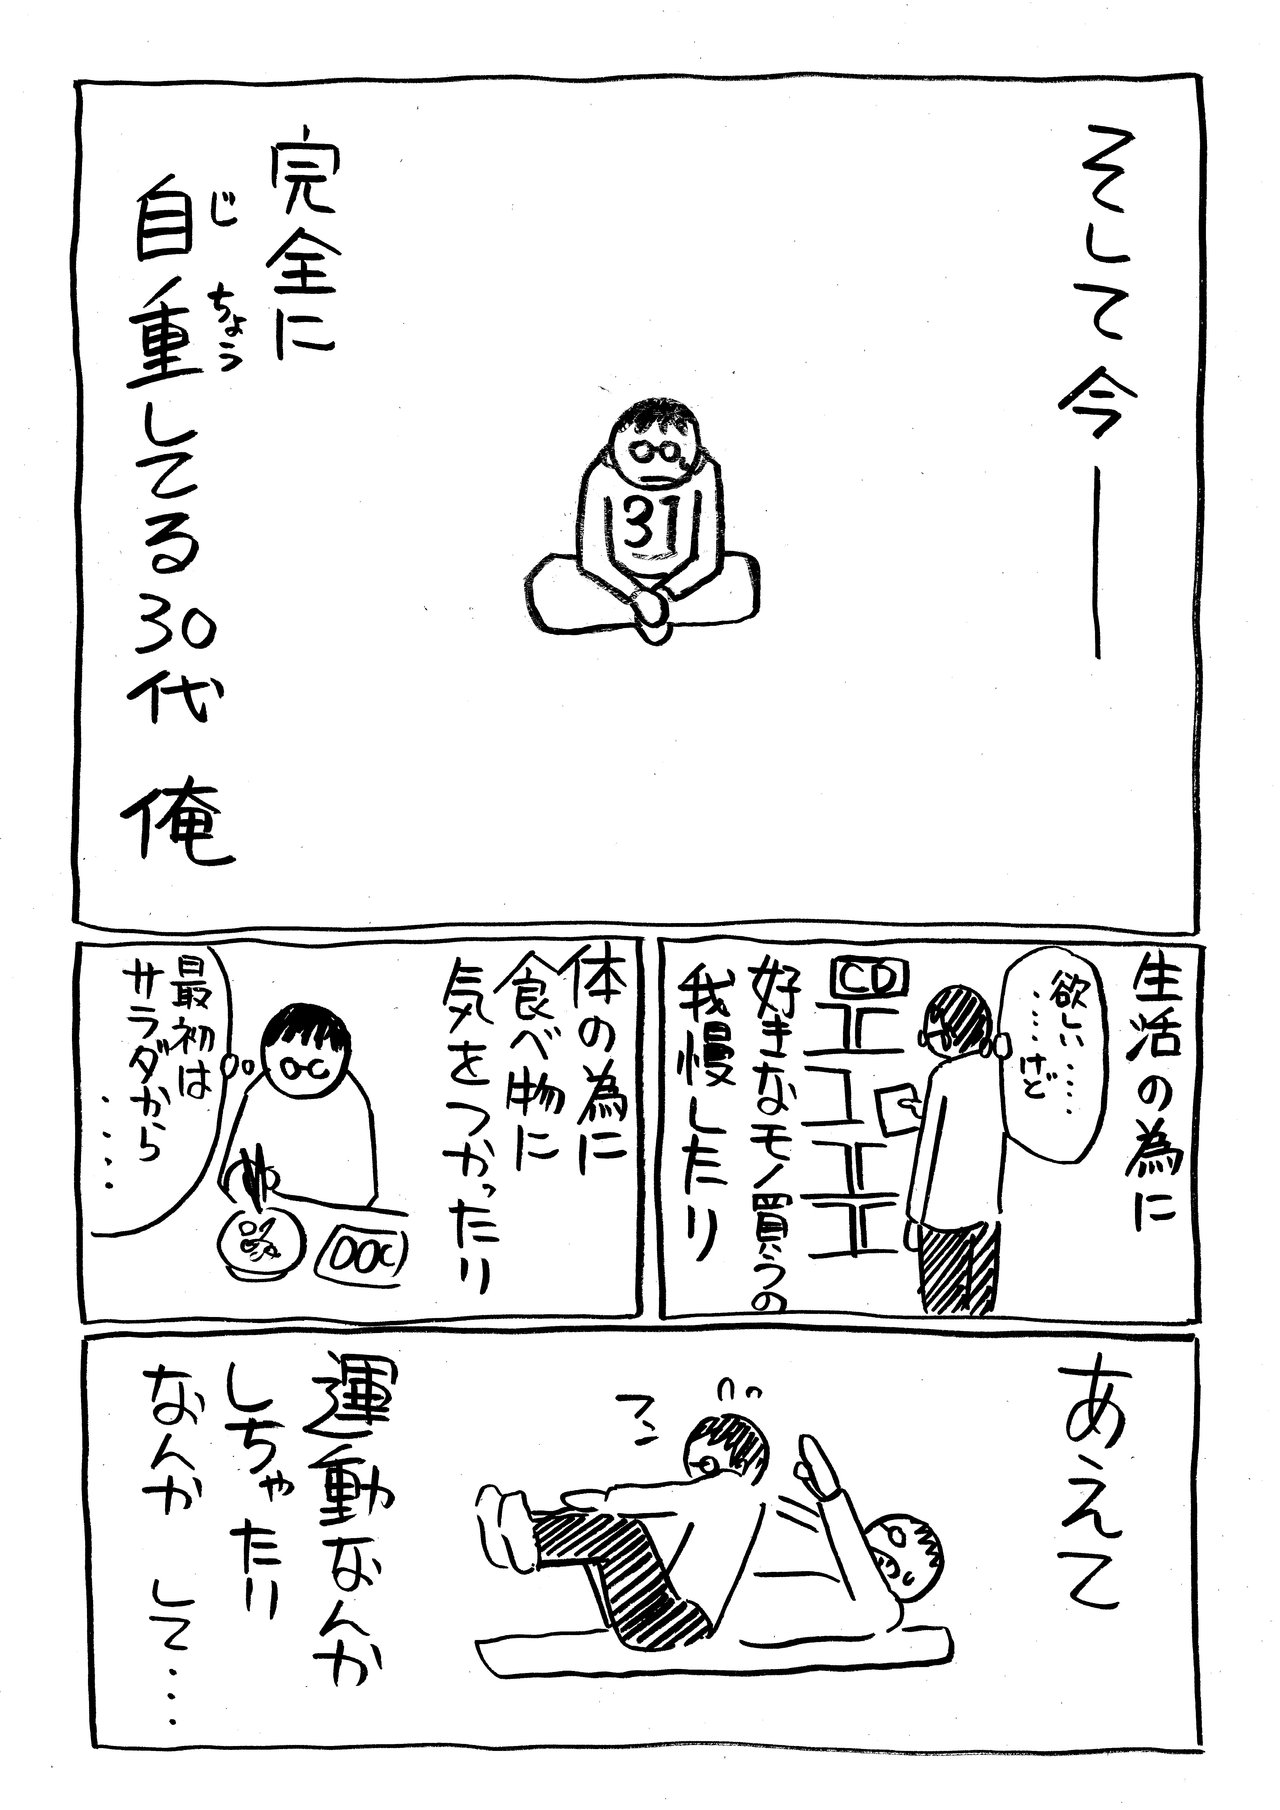 そして今――
31
完全に
自重してる30代 俺
じちょう
生活の為に
欲しい‥‥
‥‥けど
CD
好きなモノ買うの
我慢したり
体の為に
食べ物に
気をつかったり
最初は
サラダから
‥‥
あえて
フン
運動なんか
しちゃたり
なんか して‥‥